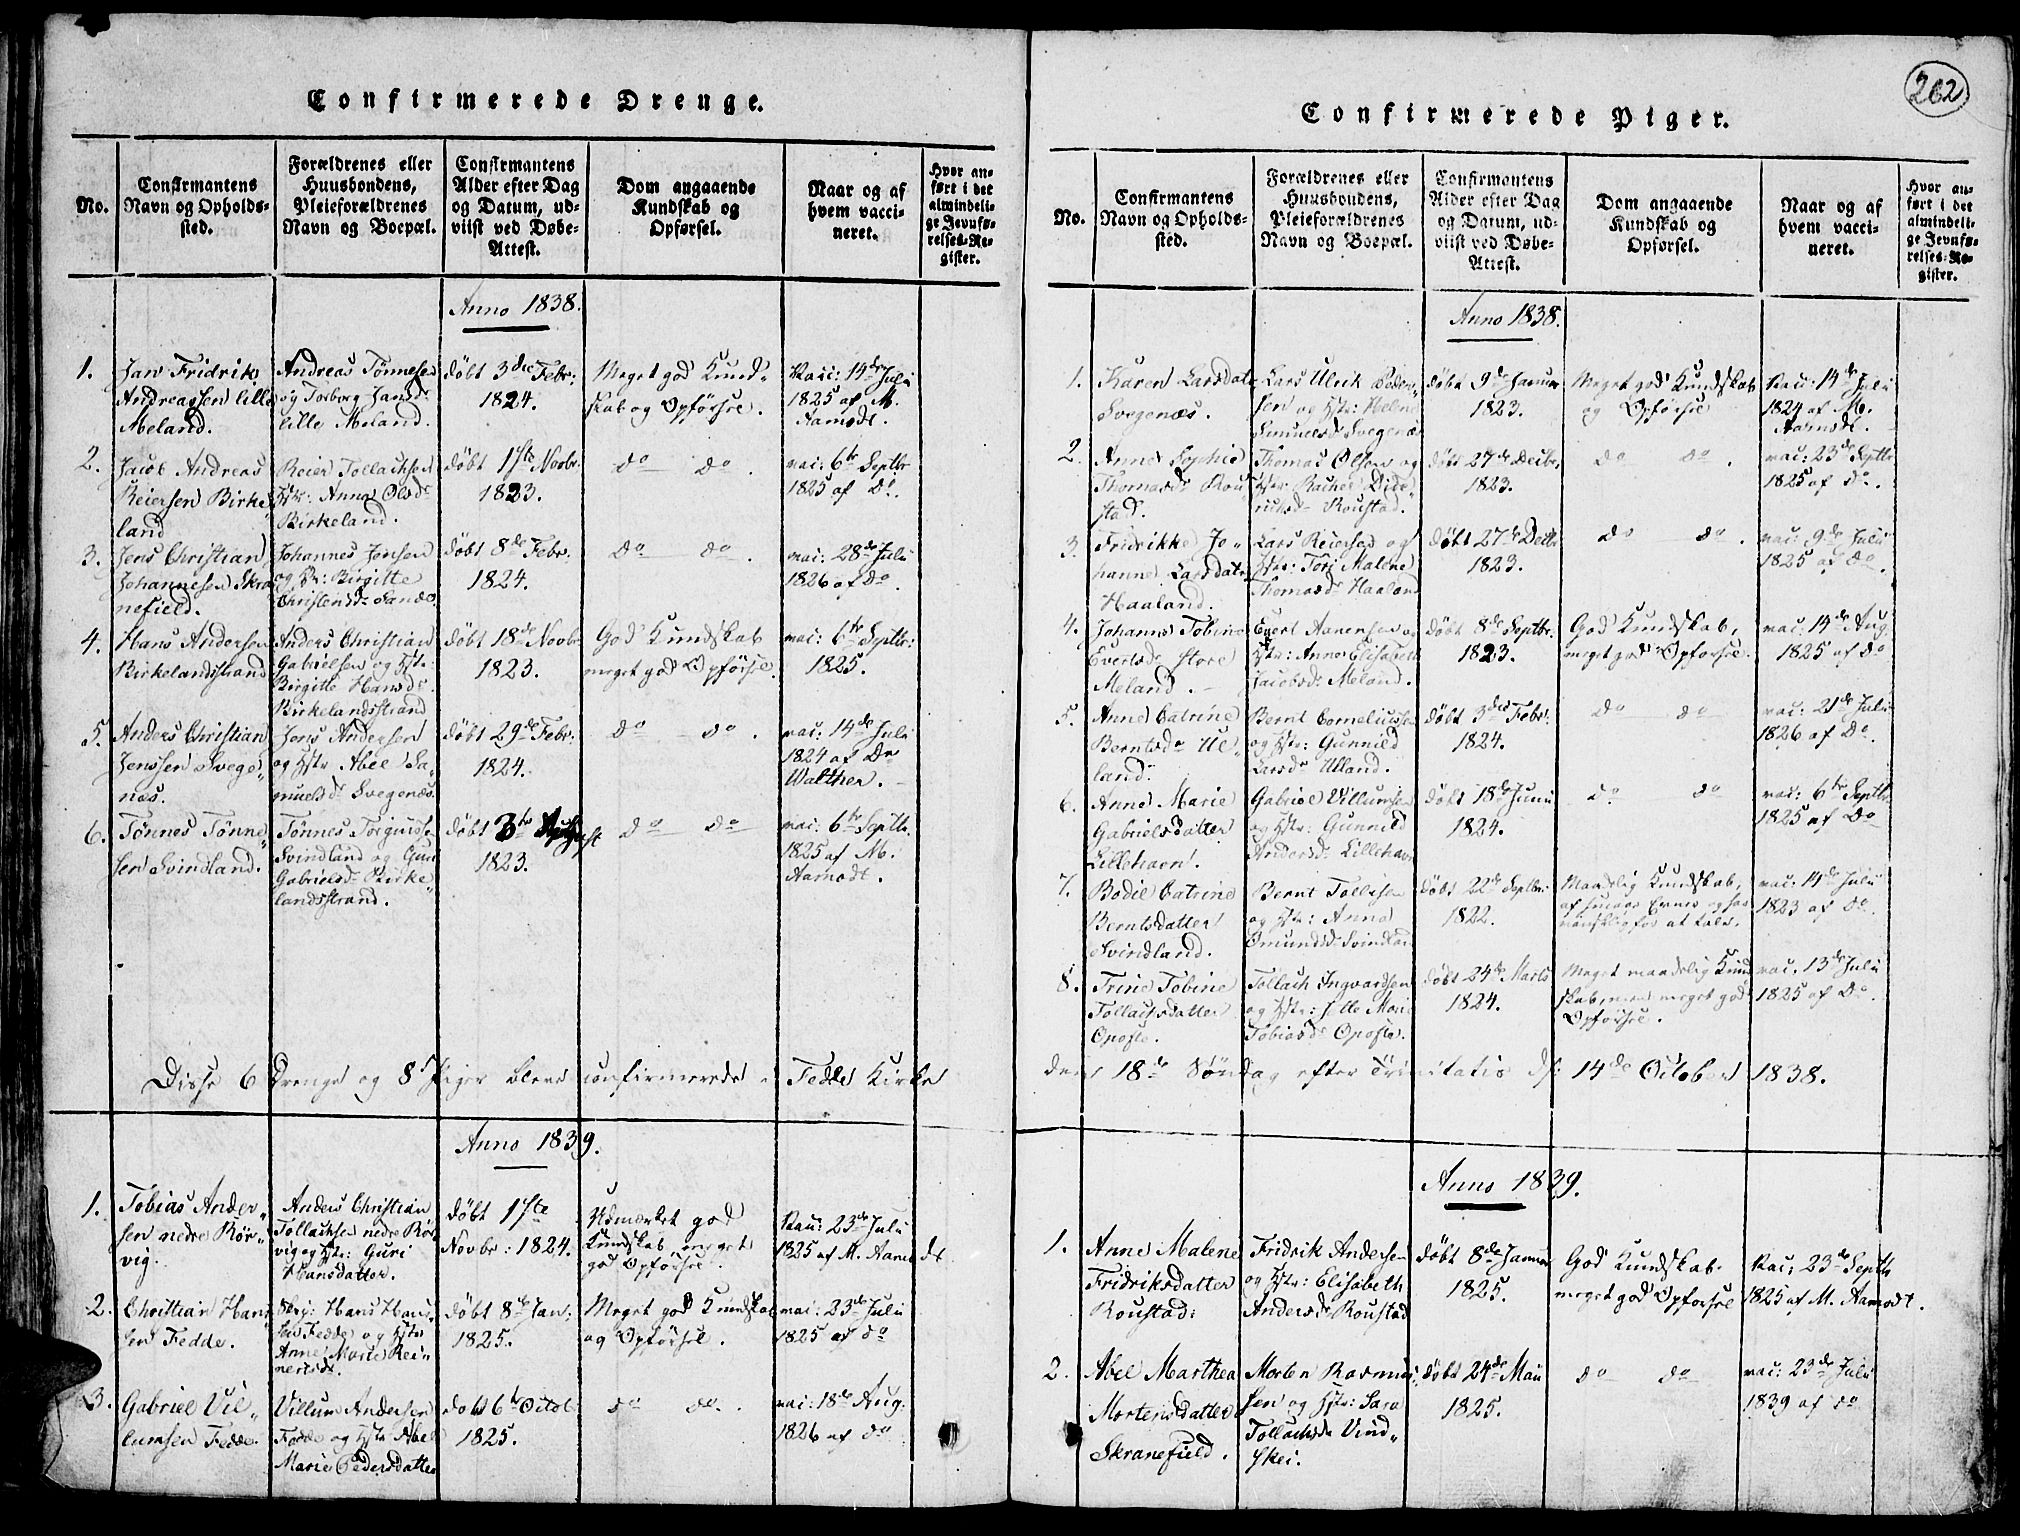 262
Confirmerede Drenge.
No.
Confirmantens
Navn og Opholds-
sted.
Forældrenes eller
Huusbondens,
Pleieforældrenes
Navn og Boepæl.
Confirmantens
Alder efter Dag
og Datum, ud-
viist ved Døbe-
Attest.
Dom angaaende
Kundskab og
Opførsel.
Naar og af
hvem vacci-
neret.
Hvor an-
ført i det
almindeli-
ge Jevnfø-
relses-Re-
gister.
Anno 1838.
1.
Jan Fridrik
Andreassen lille
Meland.
Andreas Tønnesen
og Torborg Jansd:
lille Meland.
døbt 3die Febr:
1824.
Meget god Kund-
skab og Opførsel.
Vacc: 14de Juli
1825 af M.
Aamodt.
2.
Jacob Andreas
Reiersen Birke-
land
Reier Tollachsen
Hstr: Anna Olsdr
Birkeland.
døbt 1ste Novbr.
1823.
do do.
vac: 6te Septbr
1825 af Do.
3.
Jens Christian
Johannesen Skra-
nefield.
Johannes Jensen
og Hr: Birgitte
Christensdr Sande.
døbt 8de Febr:
1824.
do do.
vac: 28de Juli
1826 af do
4.
Hans Andersen
Birkelandsstrand
Anders Christian
Gabrielsen og Hstr:
Birgitte Hansdr.
Birkelandsstrand
døbt 18de Novbr
1823.
God Kundskab
meget god Opførsel.
vac: 6te Septbr:
1825.
5.
Anders Christian
Jenssen Svege-
næs.
Jens Andersen
og Hstr Abel Sa-
muelsdr Svegenæs
døbt 29de Febr:
1824.
do do.
vac: 14de Juli
1824 af Dr
Walther.
6.
Tønnes Tønne-
sen Svindland.
Tønnes Torgiusse
Svindland og Gun
Gabrielsdr Birke-
landsstrand.
døbt 3te August
1823.
do do.
vac: 6te Septbr.
1825 af M.
Aamodt.
Disse 6 Drenge og 8 Piger bleve confirmerede i Fedde Kirke
Anno 1839.
1.
Tobias Ander-
sen nedre Rør-
vig.
Anders Christian
Tollachsen nedre Rør-
vig og Hstr: Guri
Hansdatter.
døbt 1ste
Novbr: 1824.
Udmærket god
Kundskab meget
god Opførsel.
Vac: 23de Juli
1825 af M. Aamodt
2.
Christian Han-
sen Fedde.
Skrp: Hans Han-
sen Fedde og Hstr
Anne Marie Rei-
nertsdr.
døbt 8de Jan:
1825.
Meget god Kundskab
og Opførsel.
vac: 23de Juli
1825 af do
3.
Gabriel Vil-
lumsen Fedde.
Villum Andersen
Fedde og Hstr Abel
Marie Pedersdatter
døbt 6te Octob:
1825.
do do.
vac: 18de Aug:
1826 af do
Confirmerede Piger.
No.
Confirmantens
Navn og Opholds-
sted.
Forældrenes eller
Huusbondens,
Pleieforældrenes
Navn og Boepæl.
Confirmantens
Alder efter Dag
og Datum, ud-
viist ved Døbe-
Attest.
Dom angaaende
Kundskab og
Opførsel.
Naar og af
hvem vacci-
neret.
Hvor an-
ført i det
almindeli-
ge Jevnfø-
relses-Re-
gister.
Anno 1838.
1.
Karen Larsdatr
Svegenæs.
Lars Ulrik
sen og Hstr: Helene
Simuelsdr Svegenæs
døbt 9de Januar
1823.
Meget god Kundskab
og Opførsel
Vac: 14de Juli
1824 af M.
Aamodt.
2.
Anne Sophie
Thomasdr Rou-
stad.
Thomas Olsen og
Hstr Rachel Dide-
richsdr Roustad.
døbt 27de Decbr.
1823.
do do.
vac: 23de Septbr
1825 af do.
3.
Fridrikke Jo-
hanne Larsdatr
Haaland.
Lars Reiersen og
Hstr: Tori Malene
Thomasdr Haaland
døbt 27de Decbr
1823.
do do.
vac: 9de Juli
1825 af do.
4.
Johanne Tobine
Evertsdr Store
Meland.
Evert Aanensen og
Hstr: Anne Elisabeth
Jacobsdr Meland.
døbt 8de Septbr.
1823.
God Kundskab,
meget god Opførsel.
vac: 14de Aug:
1825 af do
5.
Anne Catrine
Berntsdr Ul-
land.
Bernt Corneliussen
og Hstr: Gunnild
Larsdr Ulland.
døbt 3die Febr:
1824.
do do
vac: 21de Juli
1826 af Do.
6.
Anne Marie
Gabrielsdatter
Lillehavn.
Gabriel Villumsen
og Hstr: Gunnild
Andersdr Lillehavn
døbt 18de Juni
1824.
do do
vac: 6te Septbr
1825 af Do
7.
Bodil Catrine
Berntsdatter
Svindland.
Bernt Tollisen
og Hstr: Anna
Omundsdr Svindland
døbt 22de Septbr:
1822.
Maadelig Kundskab,
af svage Evner og har
vanskelig for at tale.
vac: 14de Juli
1823 af do.
8.
Trine Tobine
Tollachsdatter
Opofte.
Tollach Ingvardsen
og Hstr: Jitte Marie
Tobiasdr Opofte.
døbt 24de Marts
1824.
Meget maadelig Kund-
skab, men meget god
Opførsel.
vac. 13de Juli
1825 af Do.
den 18de Søndag efter Trinitatis d: 14de October 1838.
Anno 1839.
1.
Anne Malene
Fridriksdatter
Roustad.
Fridrik Andersen
og Hstr: Elisabeth
Andersdr Roustad
døbt 8de Januar
1825.
God Kundskab
meget god Opførsel
Vac: 23de Septbr
1825 af M. Aamodt.
2.
Abel Marthea
Mortensdatter
Skranefield.
Morten Rasmus-
sen og Hstr: Sara
Tollachsdr Vind-
skei.
døbt 24de Mai
1825.
do do
vac: 23de Juli
1839 af do